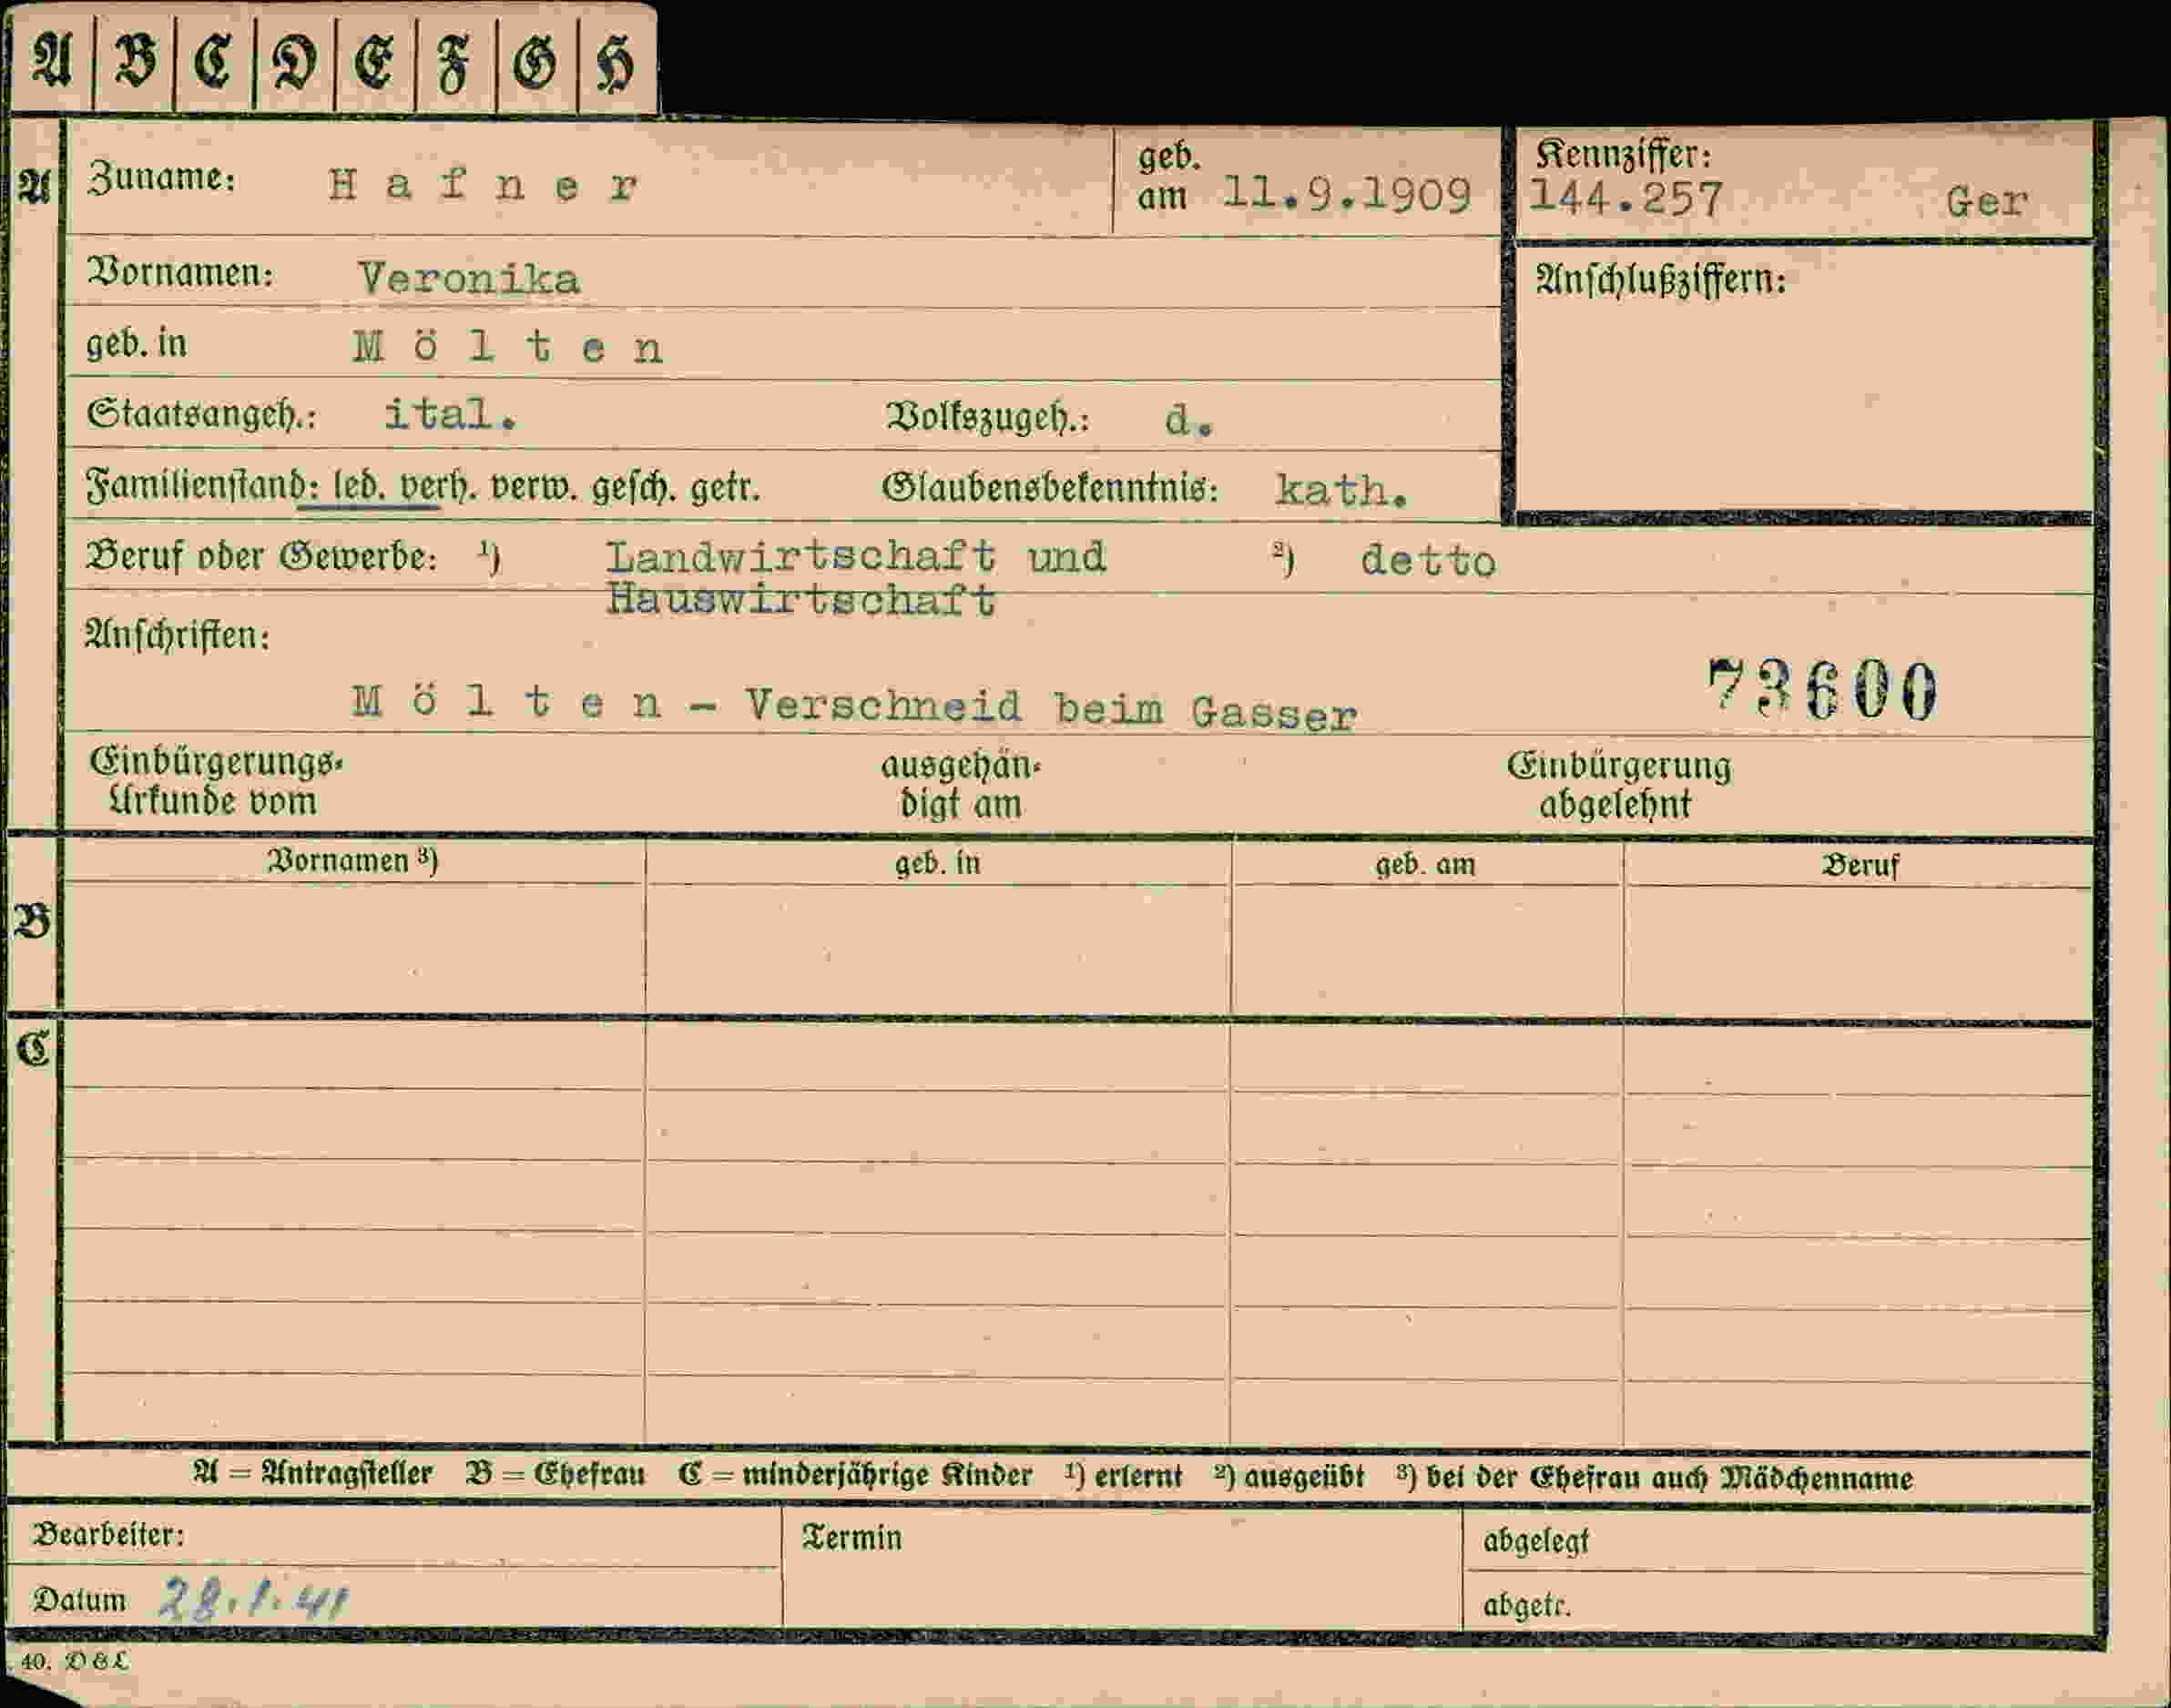 A B C D E F G H
A Zuname: Hafner geb. am 11.9.1909 Kennziffer: 144.257 Ger
Vornamen: Veronika Anschlußziffern:
geb. in Mölten
Staatsangeh.: ital. Volkszugeh.: d.
Familienstand: led. verh. verw. gesch. getr. Glaubensbekenntnis: kath.
Beruf oder Gewerbe: ¹) Landwirtschaft und ²) detto
Hauswirtschaft
Anschriften:
Mölten - Verschneid beim Gasser 73600
Einbürgerungs- ausgehän- Einbürgerung
Urkunde vom digt am abgelehnt
Vornamen ³) geb. in geb. am Beruf
B
C
A = Antragsteller B = Ehefrau C = minderjährige Kinder ¹) erlernt ²) ausgeübt ³) bei der Ehefrau auch Mädchenname
Bearbeiter: Termin abgelegt
Datum 28.1.41 abgetr.
40. D & L